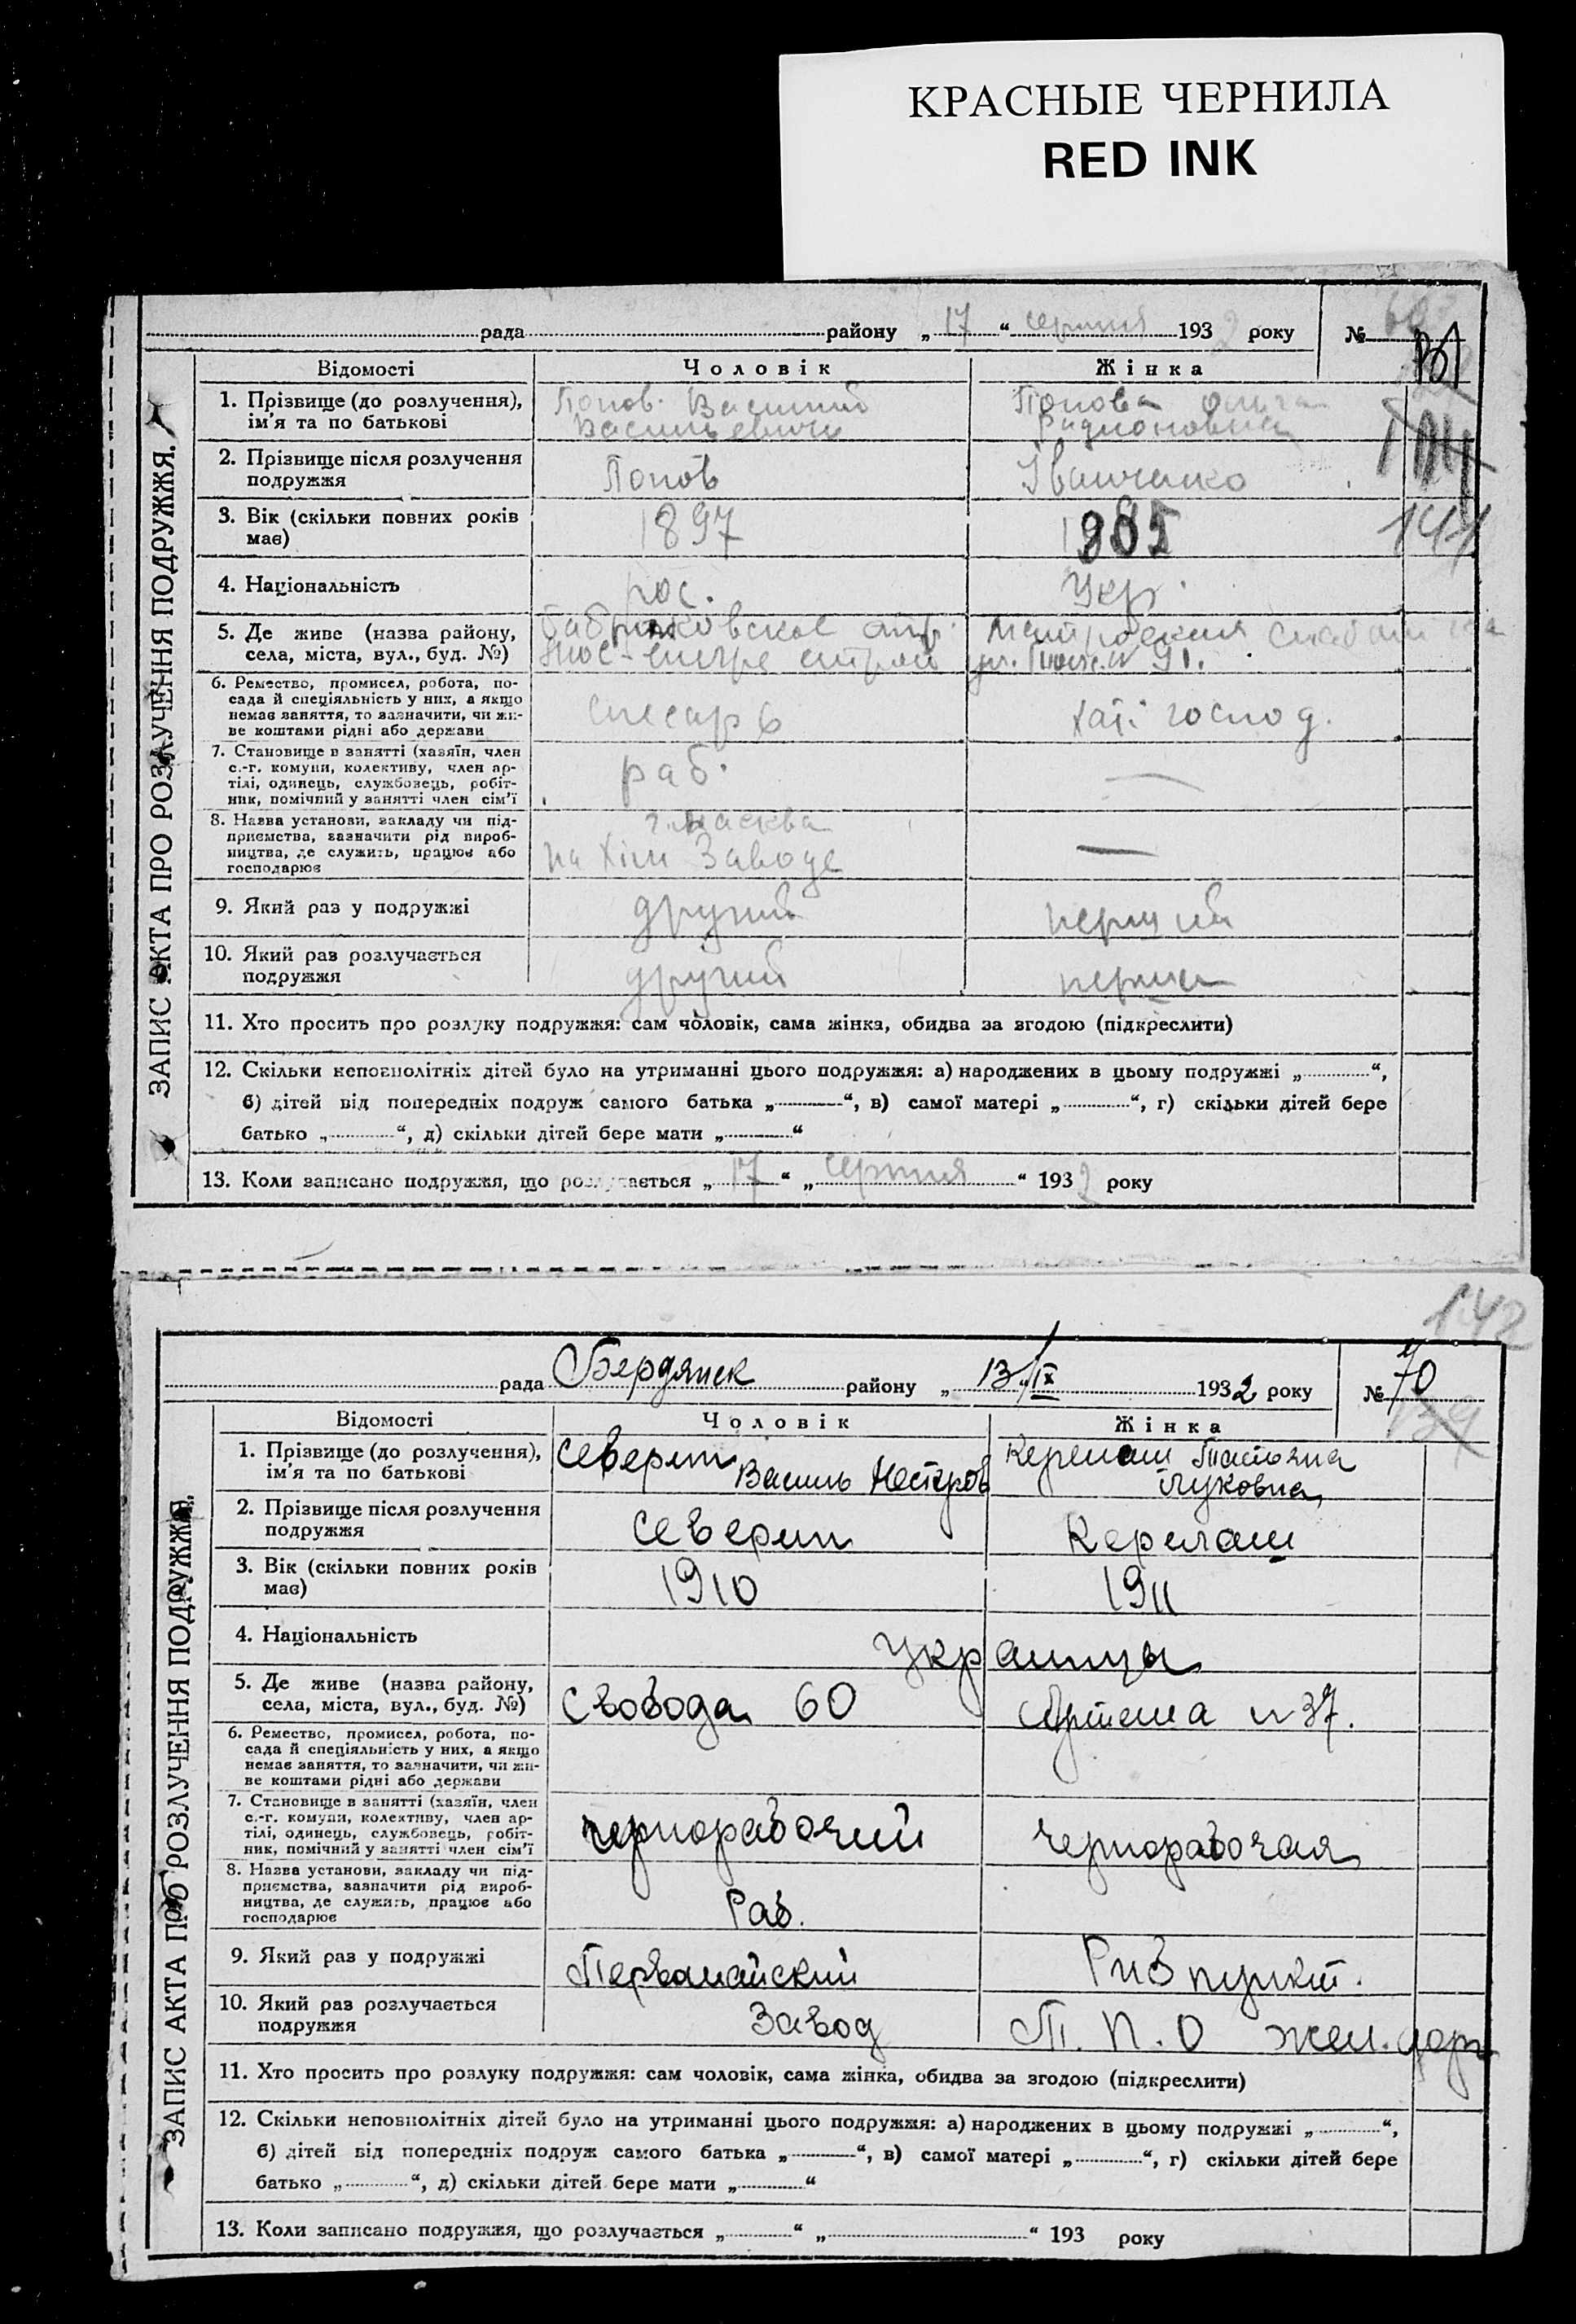 КРАСНЫЕ ЧЕРНИЛА
RED INK
ЗАПИС АКТА ПРО РОЗЛУЧЕННЯ ПОДРУЖЖЯ.
рада району „ 17 “ серпня 1932 року №
Відомості Чоловік Жінка
1. Прізвище (до розлучення), ім'я та по батькові Попов Василий Васильевич Попова Ольга Радионовна
2. Прізвище після розлучення подружжя Попов Іванченко
3. Вік (скільки повних років має) 1897
141
4. Національність рос. Укр.
5. Де живе (назва району, села, міста, вул., буд. №)
6. Ремество, промисел, робота, посада й спеціяльність у них, а якщо немає заняття, то зазначити, чи живе коштами рідні або держави слесарь хат. господ.
7. Становище в занятті (хазяїн, член с.-г. комуни, колективу, член артілі, одинець, службовець, робітник, помічний у занятті член сім'ї раб. —
8. Назва установи, закладу чи підприємства, зазначити рід виробництва, де служить, працює або господарює на Хім Заводе —
9. Який раз у подружжі другий перший
10. Який раз розлучається подружжя другий перша
11. Хто просить про розлуку подружжя: сам чоловік, сама жінка, обидва за згодою (підкреслити)
12. Скільки неповнолітніх дітей було на утриманні цього подружжя: а) народжених в цьому подружжі „ “,
б) дітей від попередніх подруж самого батька „ “, в) самої матері „ “, г) скільки дітей бере
батько „ “, д) скільки дітей бере мати „ “
13. Коли записано подружжя, що розлучається „ 17 “ „ серпня “ 1932 року
142
ЗАПИС АКТА ПРО РОЗЛУЧЕННЯ ПОДРУЖЖЯ.
рада Бердянск району „ 13/IX 1932 року № 70
139
Відомості Чоловік Жінка
1. Прізвище (до розлучення), ім'я та по батькові Северин Василь Нестеров Керелаш Татьяна Луковна
2. Прізвище після розлучення подружжя Северин Керелаш
3. Вік (скільки повних років має) 1910 1911
4. Національність Украинцы
5. Де живе (назва району, села, міста, вул., буд. №) Свобода 60 Артема № 37.
6. Ремество, промисел, робота, посада й спеціяльність у них, а якщо немає заняття, то зазначити, чи живе коштами рідні або держави
7. Становище в занятті (хазяїн, член с.-г. комуни, колективу, член артілі, одинець, службовець, робітник, помічний у занятті член сім'ї чернорабочий чернорабочая
8. Назва установи, закладу чи підприємства, зазначити рід виробництва, де служить, працює або господарює Раб.
9. Який раз у подружжі Первамайский пункт.
10. Який раз розлучається подружжя Завод Т. П. О жел. дор
11. Хто просить про розлуку подружжя: сам чоловік, сама жінка, обидва за згодою (підкреслити)
12. Скільки неповнолітніх дітей було на утриманні цього подружжя: а) народжених в цьому подружжі „ “,
б) дітей від попередніх подруж самого батька „ “, в) самої матері „ “, г) скільки дітей бере
батько „ “, д) скільки дітей бере мати „ “
13. Коли записано подружжя, що розлучається „ “ „ “ 193 року